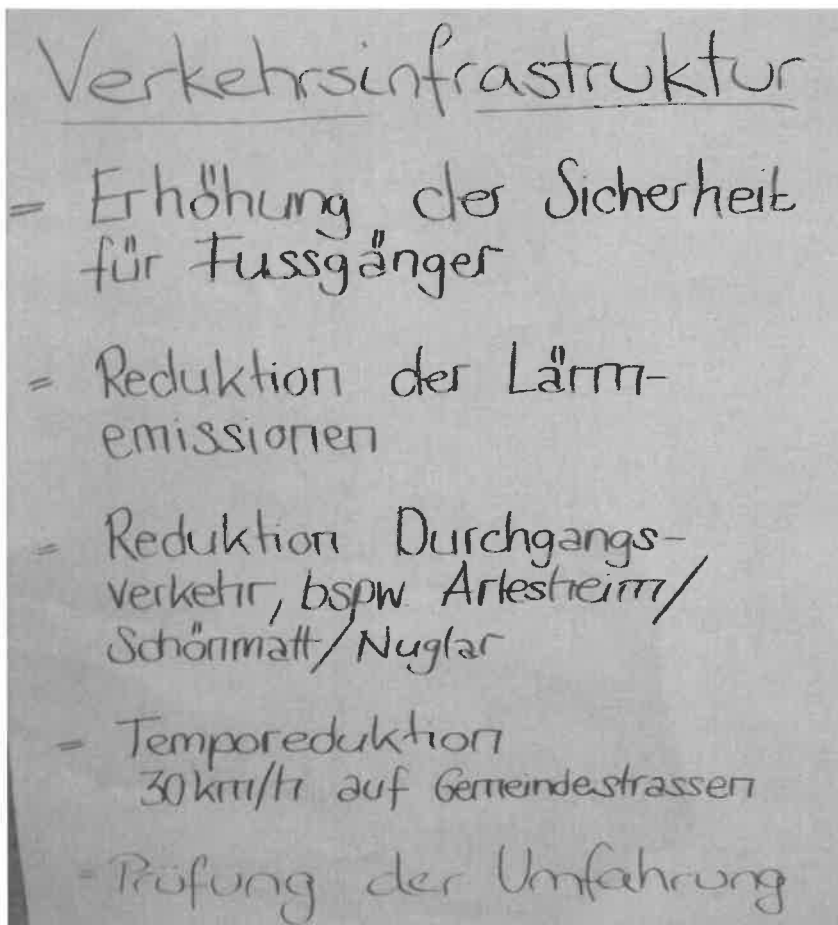 Verkehrsinfrastruktur
= Erhöhung der Sicherheit
für Fussgänger
= Reduktion der Lärm-
emissionen
= Reduktion Durchgangs-
verkehr, bspw Arlesheim/
Schönmatt/Nuglar
= Temporeduktion
30km/h auf Gemeindestrassen
= Prüfung der Umfahrung